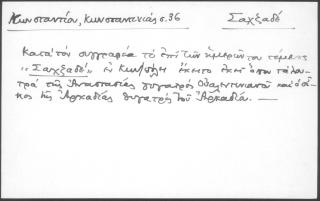 Κωνσταντίου, Κωνσταντινιάς σ. 36 Σαχξαδέ
Κατά τόν συγγραφέα τό ἐπί τῶν ἡμερῶν του τέμενος
"Σαχξαδέ" ἐν Κων/πόλει ἔκειτο ἐκεῖ ὅπου τά λου-
τρά τῆς Ἀναστασίας θυγατρός Οὐαλεντινιανοῦ καί ὁ οἶ-
κος τῆς Ἀρκαδίας θυγατρός τοῦ Ἀρκαδίου. —